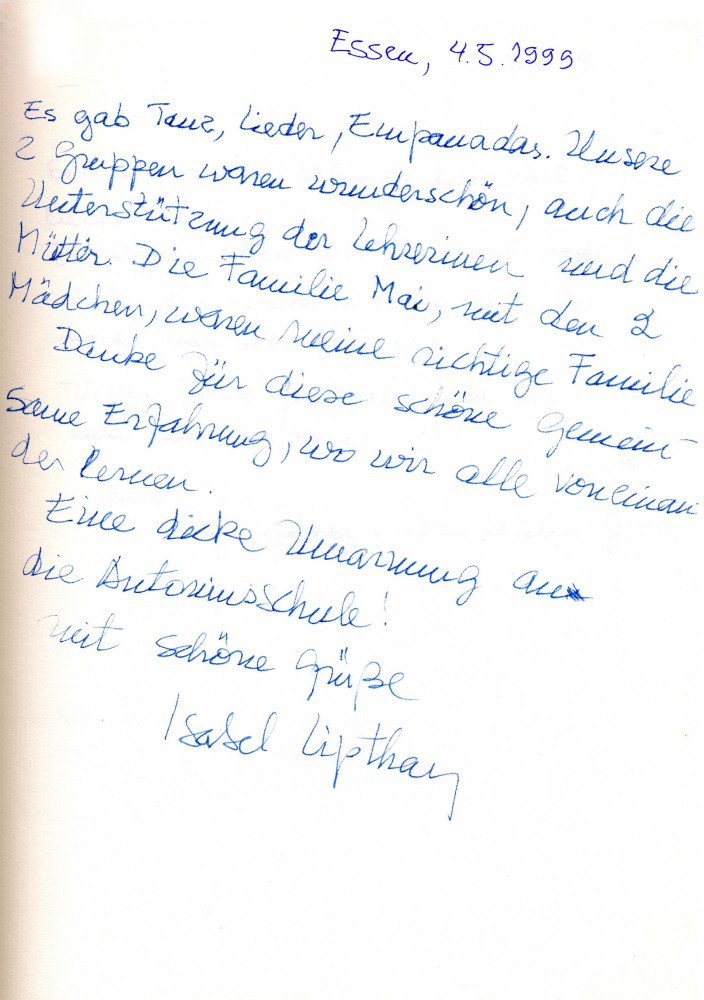 Essen, 4.5.1999
Es gab Tanz, Lieder, Empanadas. Unsere
2 Gruppen waren wunderschön, auch die
Unterstützung der Lehrerinen und die
Mütter. Die Familie Mai, mit den 2
Mädchen, waren meine richtige Familie
Danke für diese schöne gemein-
same Erfahrung, wo wir alle voneinan
der lernen.
Eine dicke Umarmung an
die Antoniusschule!
mit schöne Grüße
Isabel Lipthay